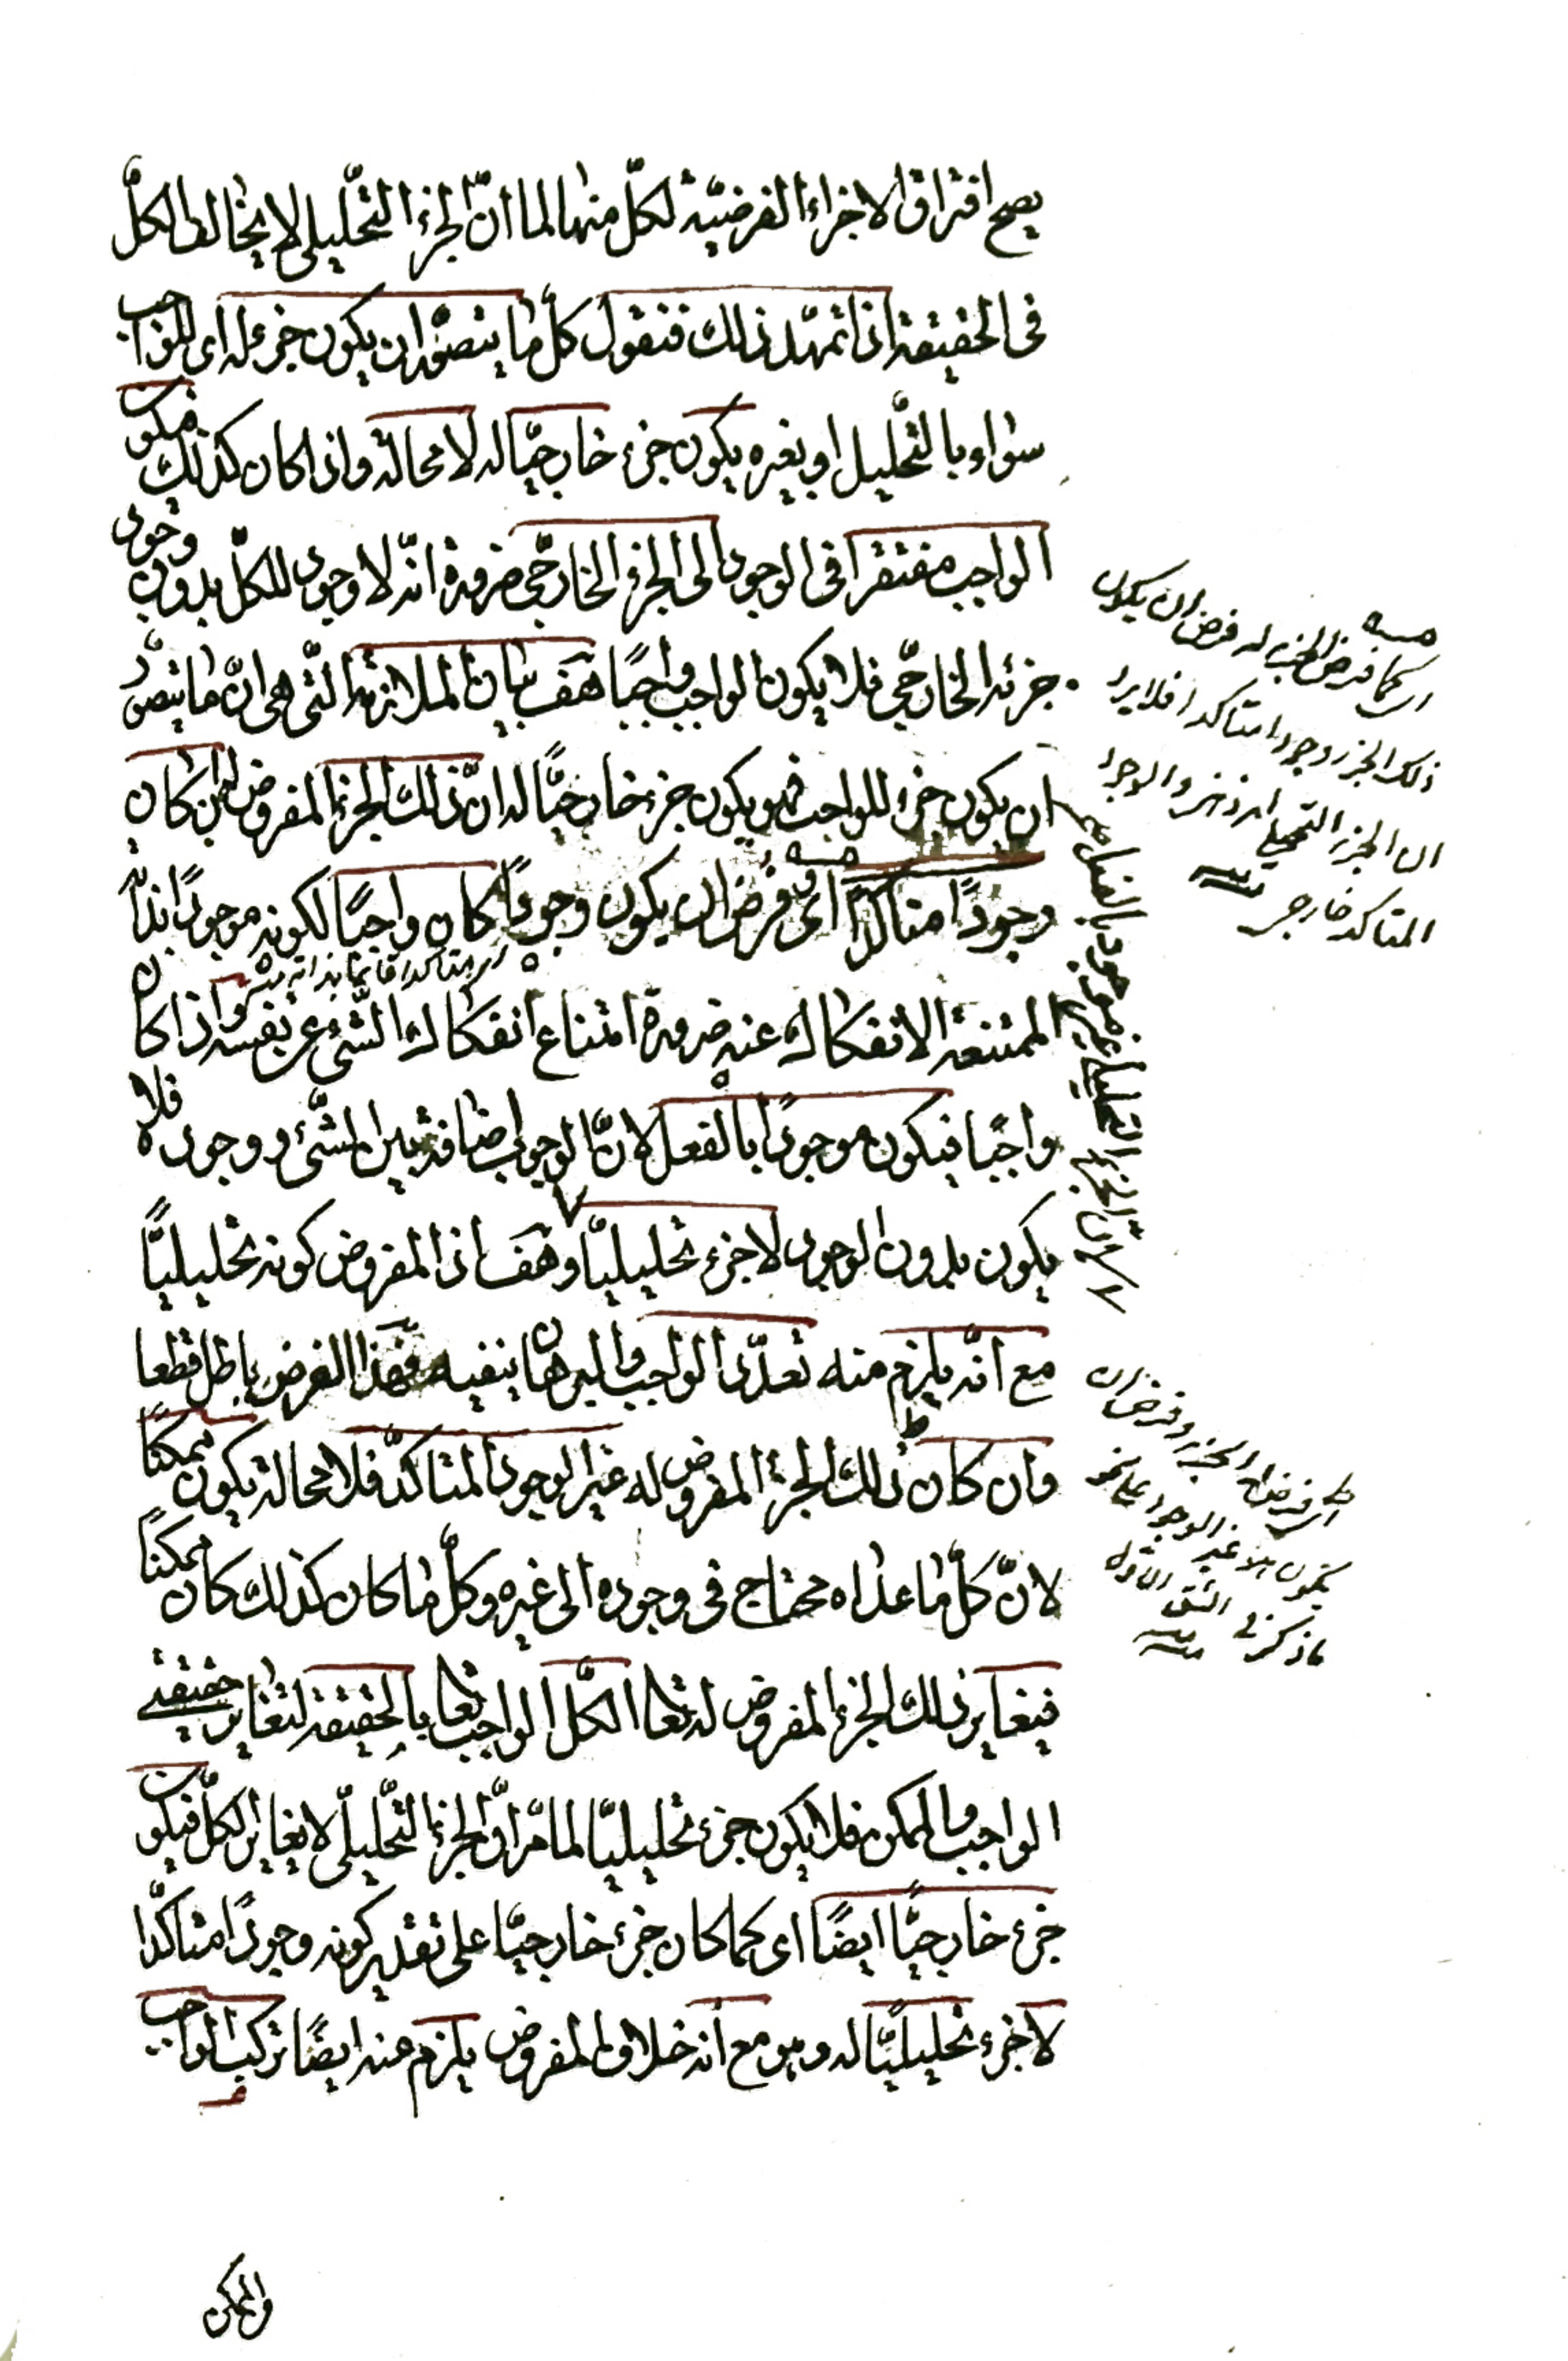 يصح افتراق الاجزاء الفرضيّة لكلّ منهما لما انّ الجزء التحليلي لا يخالف الكلّ
فى الحقيقة اذا تمهّد ذلك فنقول كلّ ما يتصوّر ان يكون جزء له اى للواجب
سواء بالتحليل او بغيره يكون جزء خارجيّا له لا محالة واذا كان كذلك فيكون
الواجب مفتقرا فى الوجود الى الجزء الخارجى ضرورة انّه لا وجود للكلّ بدون وجود
جزئه الخارجى فلا يكون الواجب واجبًا هف بيان الملازمة التى هى انّ ما يتصوّر
ان يكون جزء للواجب فهو يكون جزء خارجيّا له انّ ذلك الجزء المفروض لئن كان
وجودًا متأكدًا اى فرض ان يكون وجودًا كان واجبًا لكونه موجودًا بذاته
الممتنعة الانفكاك عنه ضرورة امتناع انفكاك الشّئ عن نفسه واذا كان
واجبًا فيكون موجودًا بالفعل لانّ الوجوب اضافة بين الشّئ ووجوده فلا
يكون بدون الوجود لا جزء تحليليّا وهف اذ المفروض كونه تحليليًّا
مع انّه يلزم منه تعدّد الواجب والبرهان ينفيه فهذا الفرض باطل قطعا
وان كان ذلك الجزء المفروض له غير الوجود المتاكدّ فلا محالة يكون ممكنًا
لانّ كلّ ما عداه محتاج فى وجوده الى غيره وكلّ ما كان كذلك كان ممكنًا
فيغاير ذلك الجزء المفروض له تعا الكلّ الواجب تعا بالحقيقة لتغاير حقيقتى
الواجب والممكن فلا يكون جزء تحليليّا لما مرّ انّ الجزء التحليلىّ لا يغاير الكلّ فيكون
جزء خارجيّا ايضًا اى كما كان جزء خارجيّا على تقدير كونه وجودًا متاكدّا
لا جزء تحليليّا له وهو مع انه خلاف المفروض يلزم منه ايضًا تركيب الواجب
اى كما فرض الجزء له فرض ان يكون
ذلك الجزء وجودا متاكدا فلا يرد
ان الجزء التحليلى امر ذهنى والوجود
المتاكد خارجى منه
والممكن